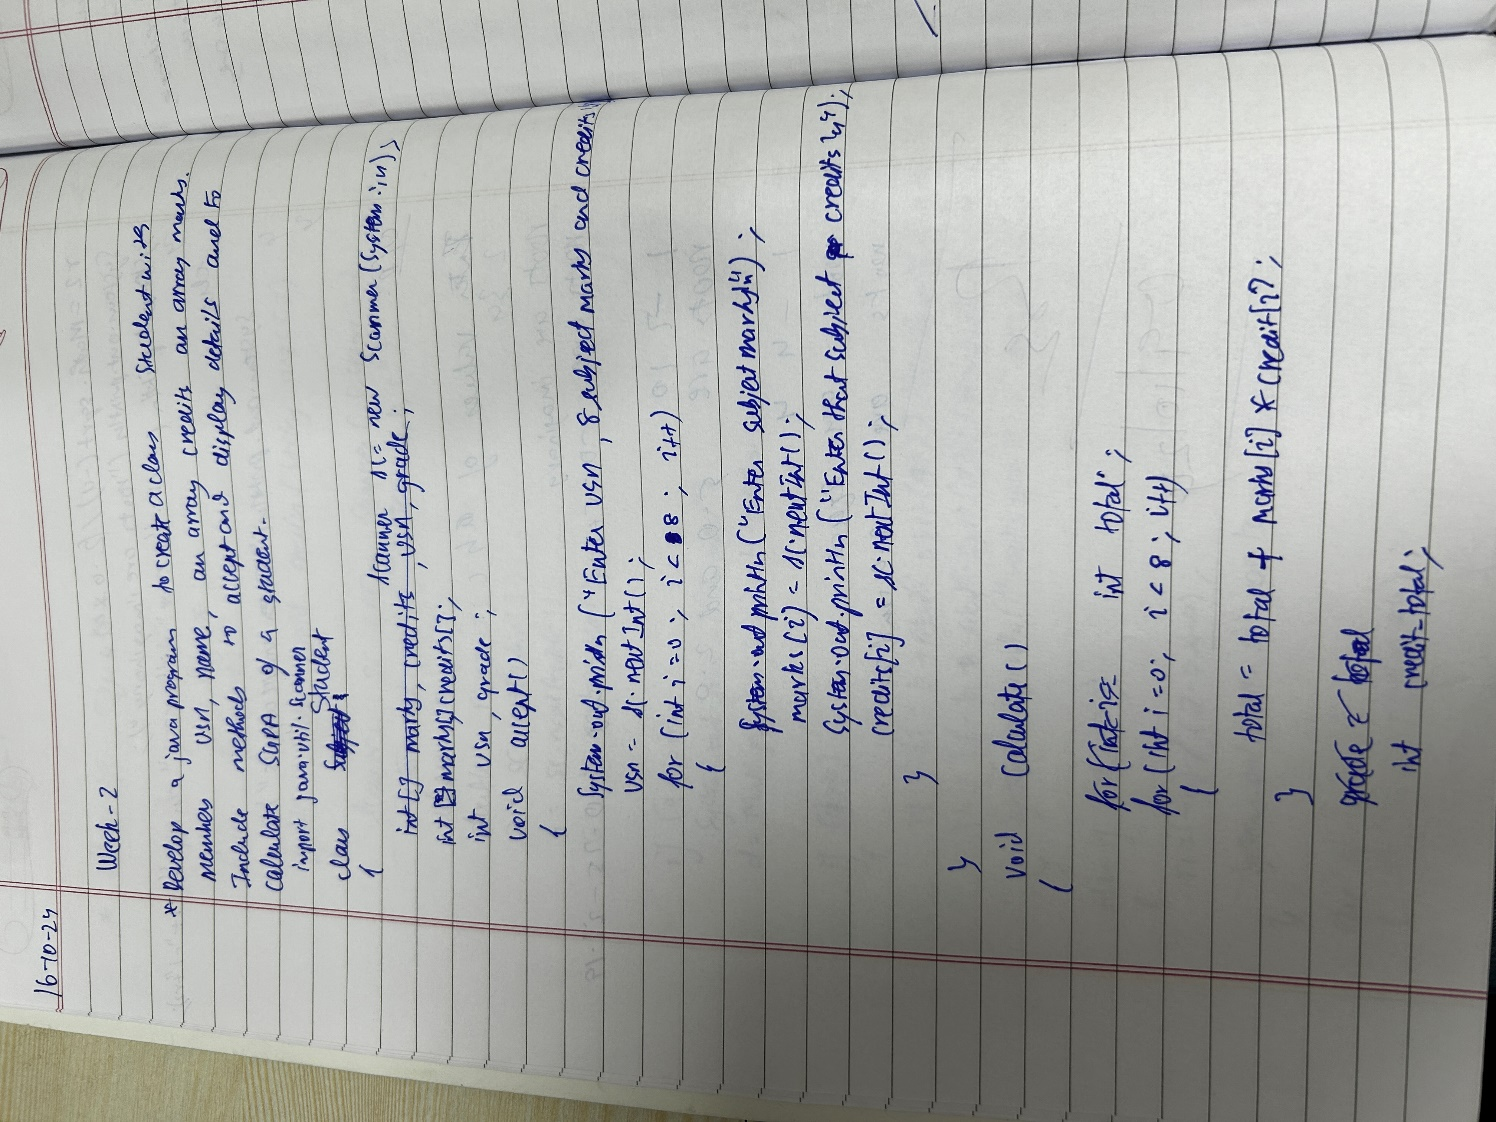 16-10-24
Week-2
* Develop a java program to create a class Student with
members usn, name, an array credits an array marks.
Include methods to accept and display details and to
calculate SGPA of a student.
import java.util.scanner
class Student
{
scanner sc = new Scanner(System.in);
int[] marks, credits, usn, grade;
int marks[], credits[];
int usn, grade;
void accept()
{
System.out.println("Enter usn, 8 subject marks and credits
usn = sc.nextInt();
for (int i=0; i<8; i++)
{
System.out.println("Enter subject marks\n");
marks[i] = sc.nextInt();
System.out.println("Enter that subject credits\n");
credits[i] = sc.nextInt();
}
}
void Calculate()
{
int total;
for(int i=
for(int i=0; i<8; i++)
{
total = total + marks[i] * credit[i];
}
grade = total
int credit-total;